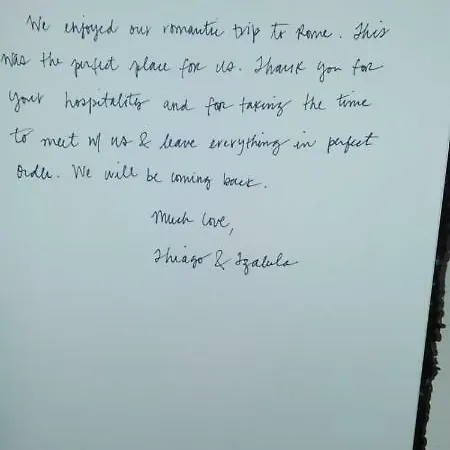 We enjoyed our romantic trip to Rome. This
was the perfect place for us. Thank you for
your hospitality and for taking the time
to meet w/ us & leave everything in perfect
order. We will be coming back.
Much love,
Thiago & Izabela